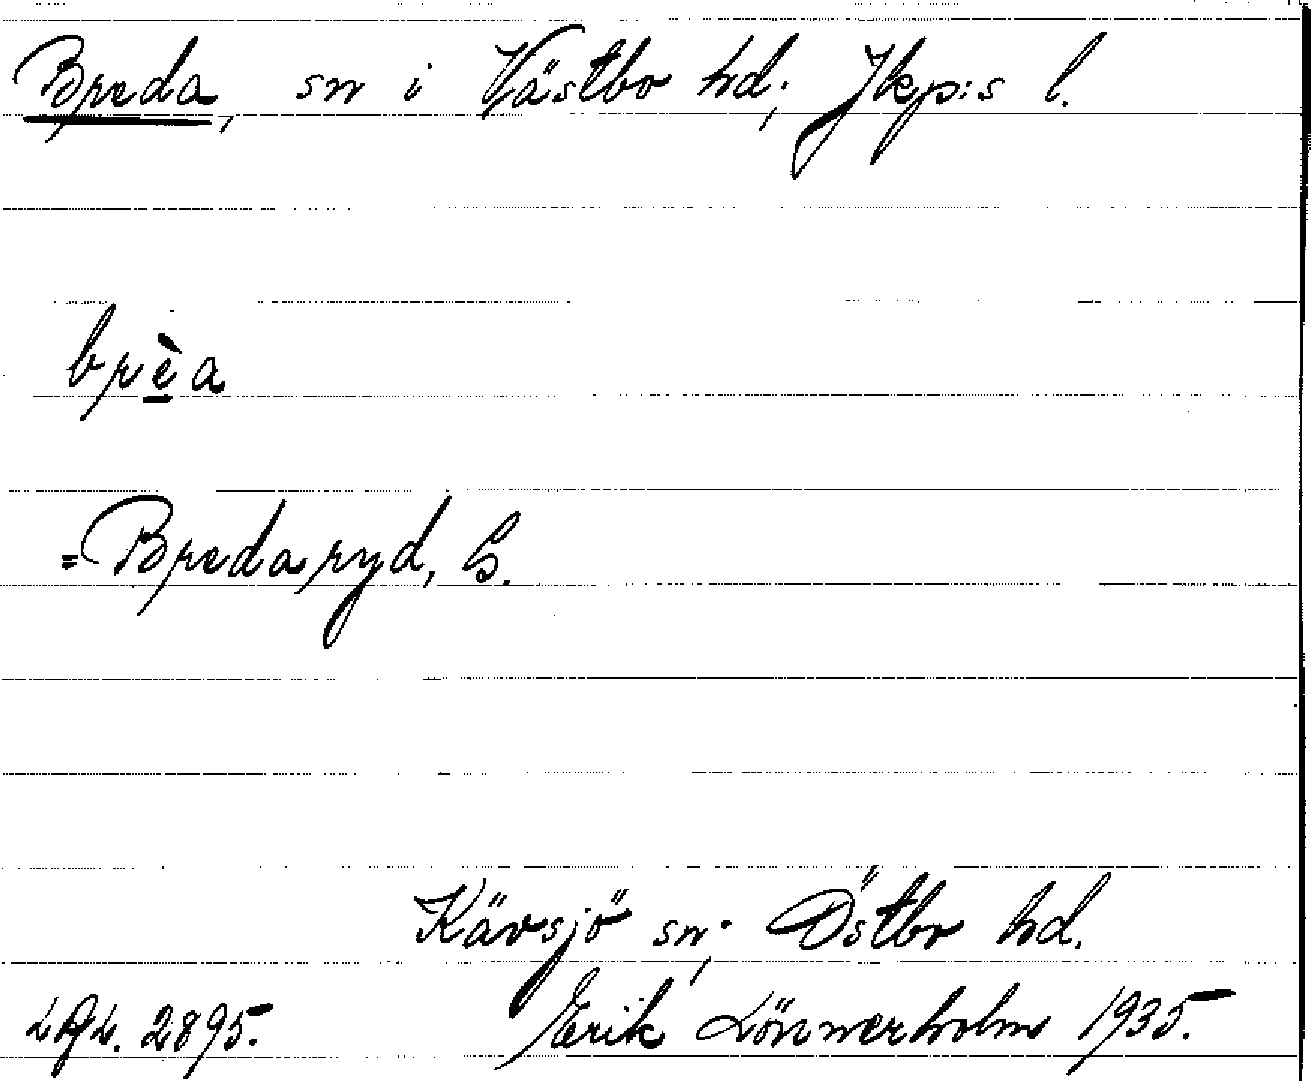 Breda, sn i Västbo hd; Jkp:s l.
brèa
=Bredaryd, S.
Kävsjö sn; Östbo hd.
Erik Lönnerholm 1935.
2895.